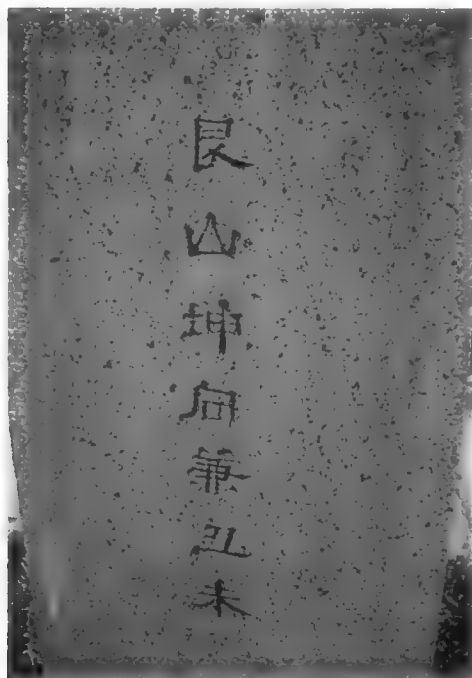 艮山坤向兼丑未